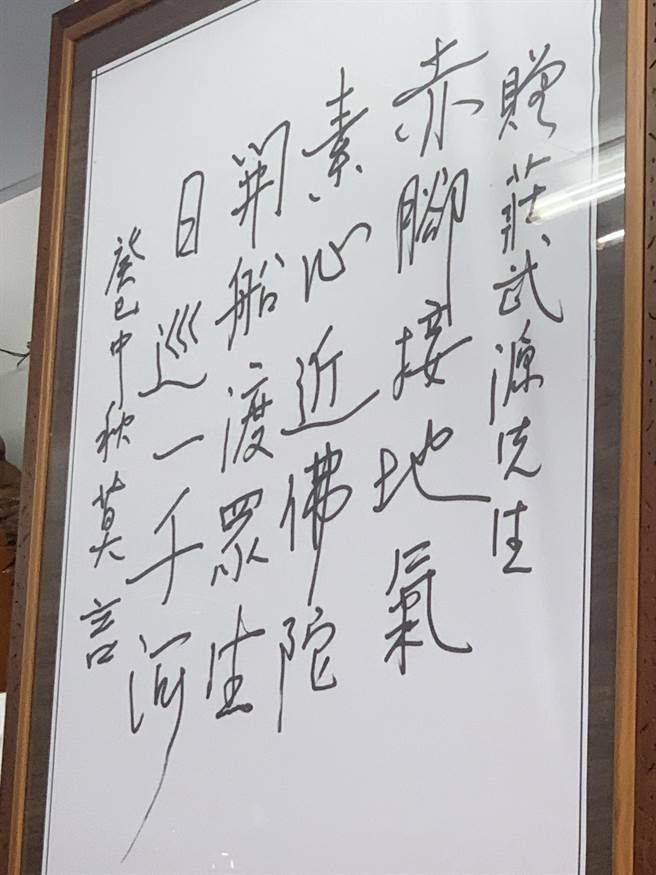 贈莊武源先生
赤腳接地氣
素心近佛陀
開船渡眾生
日巡一千河
癸巳中秋莫言